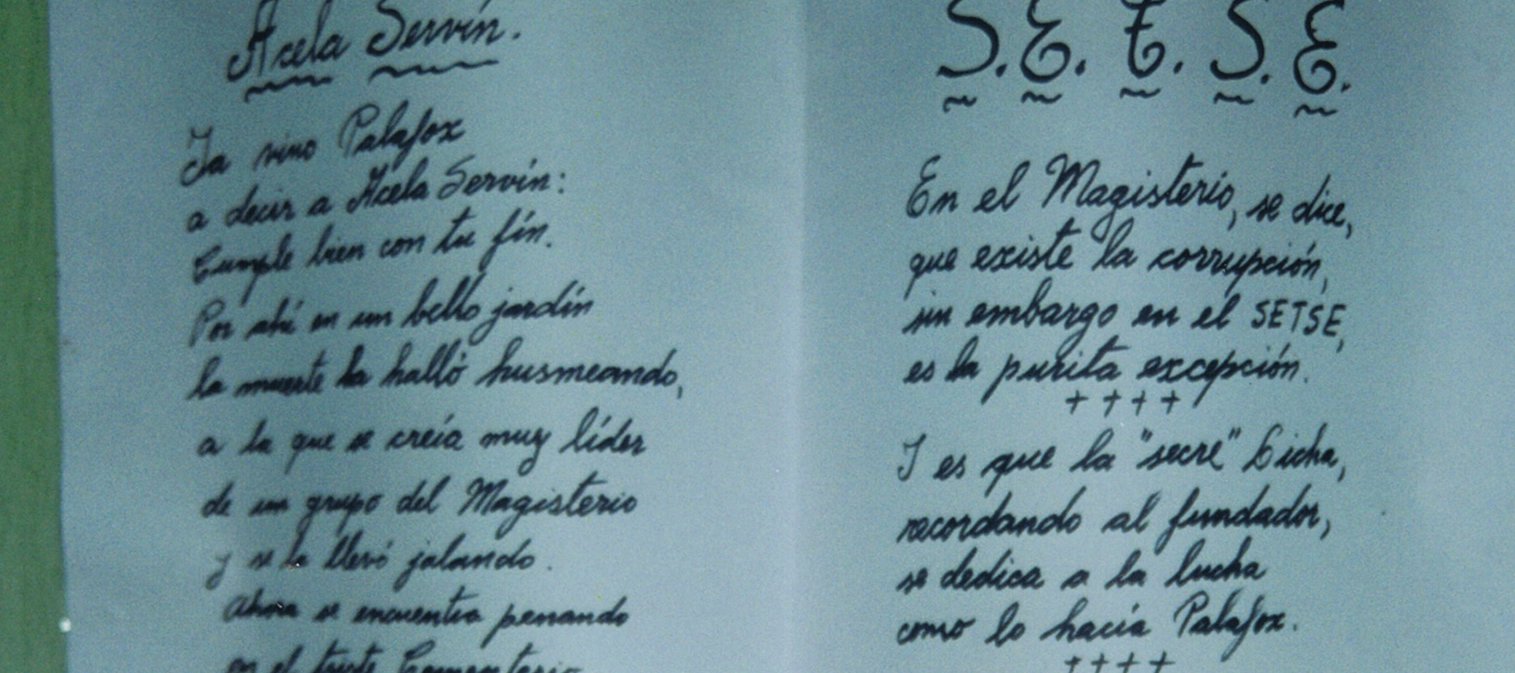 Acela Servín.
Ya vino Palafox
a decir a Acela Servín:
Cumple bien con tu fín.
Por ahí en un bello jardín
la muerte la halló husmeando,
a la que se creía muy líder
de un grupo del Magisterio
y se la llevó jalando.
Ahora se encuentra penando
en el triste Cementerio
S.E.T.S.E.
En el Magisterio, se dice,
que existe la corrupción,
sin embargo en el SETSE,
es la purita excepción.
++++
Y es que la "secre" Licha,
recordando al fundador,
se dedica a la lucha
como lo hacía Palafox.
++++